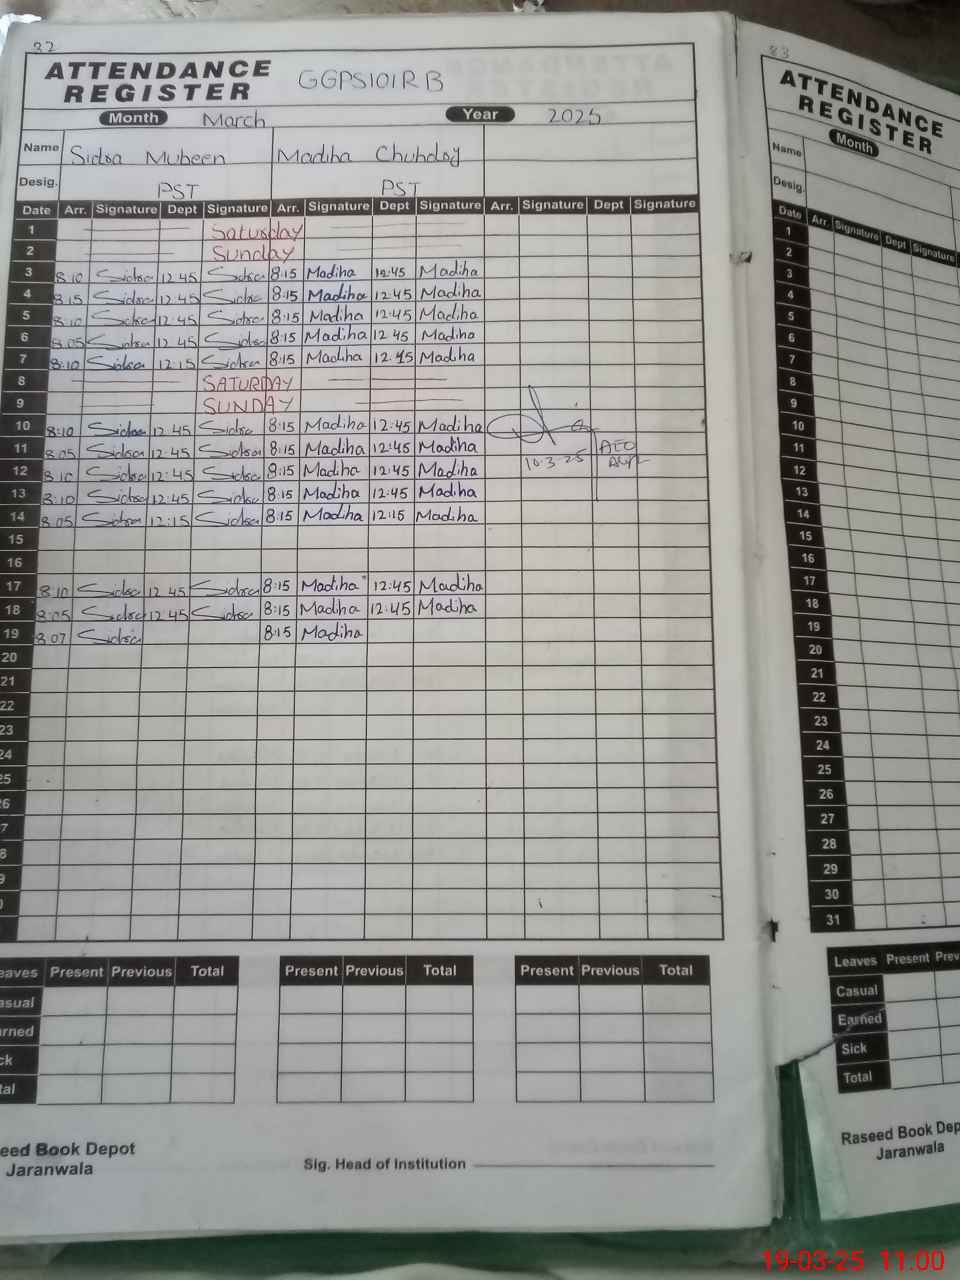 82
ATTENDANCE REGISTER GGPS101RB
Month March Year 2025
Name Sidra Mubeen Madiha Chuhdry
Desig. PST PST
Date Arr. Signature Dept Signature Arr. Signature Dept Signature Arr. Signature Dept Signature
1 Saturday
2 Sunday
3 8:10 Sidra 12 45 Sidra 8:15 Madiha 12:45 Madiha
4 8:15 Sidra 12:45 Sidra 8:15 Madiha 12:45 Madiha
5 8:10 Sidra 12:45 Sidra 8:15 Madiha 12:45 Madiha
6 8.05 Sidra 12 45 Sidra 8:15 Madiha 12 45 Madiha
7 8:10 Sidra 12:15 Sidra 8:15 Madiha 12:45 Madiha
8 SATURDAY
9 SUNDAY
10 8:10 Sidra 12 45 Sidra 8:15 Madiha 12:45 Madiha
11 8:05 Sidra 12:45 Sidra 8:15 Madiha 12:45 Madiha AEO
12 8:10 Sidra 12:45 Sidra 8:15 Madiha 12:45 Madiha 10-3-25
13 8:10 Sidra 12:45 Sidra 8:15 Madiha 12:45 Madiha
14 8:05 Sidra 12:15 Sidra 8:15 Madiha 12:15 Madiha
15
16
17 8:10 Sidra 12 45 Sidra 8:15 Madiha 12:45 Madiha
18 8:05 Sidra 12 45 Sidra 8:15 Madiha 12:45 Madiha
19 8 07 Sidra 8:15 Madiha
20
21
22
23
24
25
26
7
8
9
0
eaves Present Previous Total Present Previous Total Present Previous Total
asual
arned
ck
tal
eed Book Depot
Jaranwala
Sig. Head of Institution
83
ATTENDANCE
REGISTER
Month
Name
Desig.
Date Arr. Signature Dept Signature
1
2
3
4
5
6
7
8
9
10
11
12
13
14
15
16
17
18
19
20
21
22
23
24
25
26
27
28
29
30
31
Leaves Present Prev
Casual
Earned
Sick
Total
Raseed Book Dep
Jaranwala
19-03-25 11:00